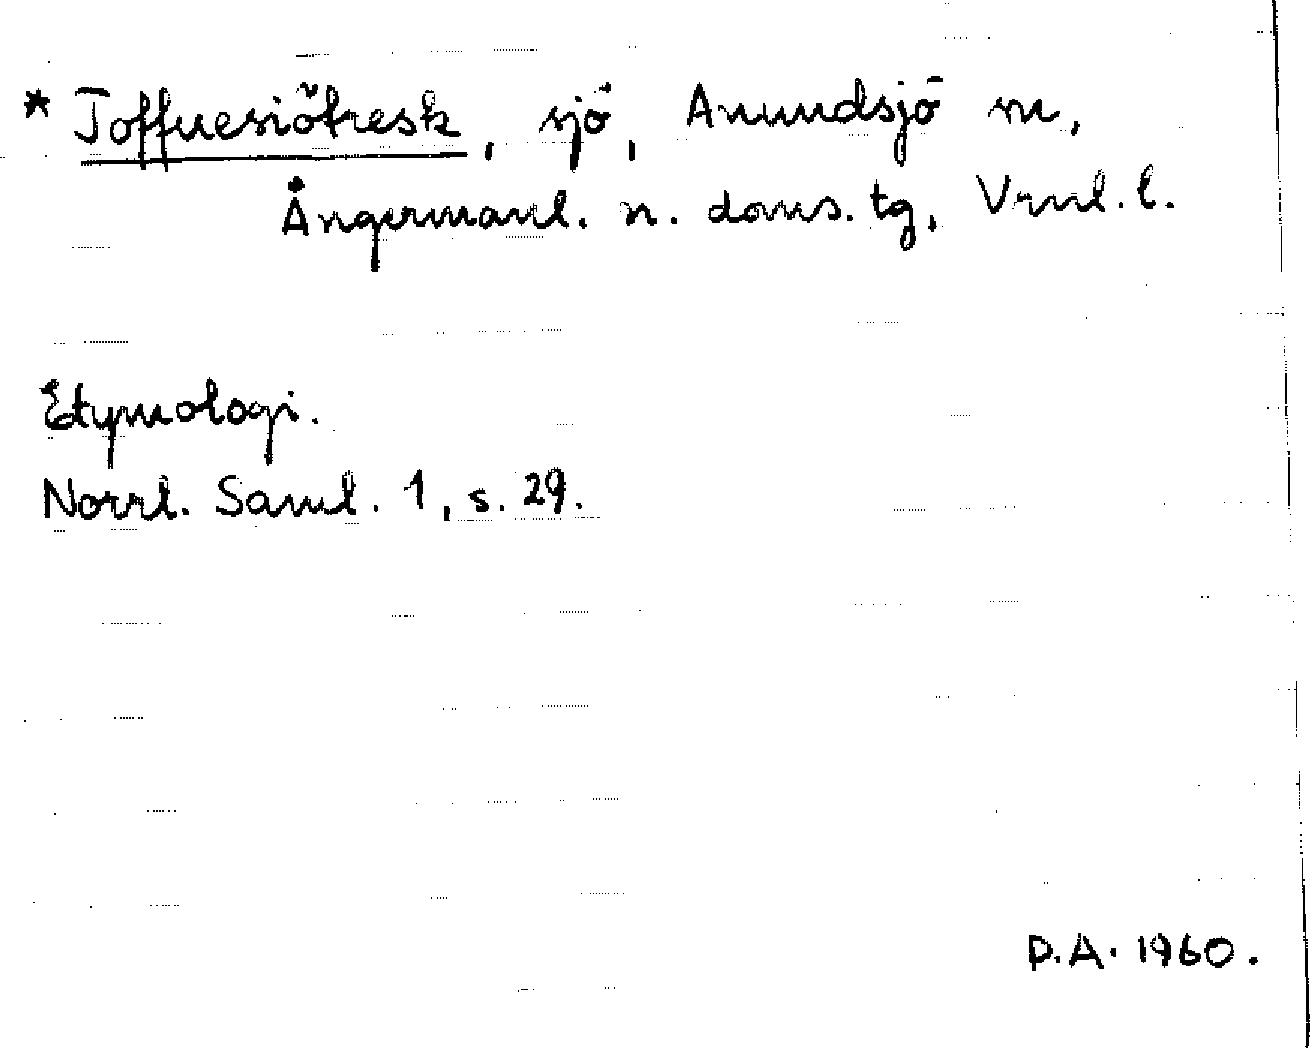 * Toffuesiötresk, sjö, Anundsjö sn,
Ångermanl. n. doms. tg, Vrnl. l.
Etymologi.
Norrl. Saml. 1, s. 29.
D.A. 1960.